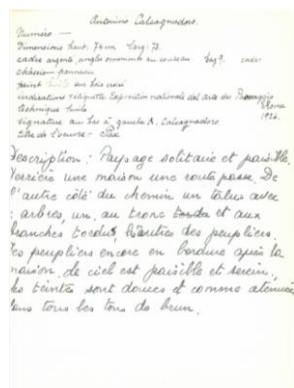 Antonino Calcagnadoro.
Numéro —
Dimensions haut. 74 cm larg. 73.
cadre argenté, angles ornements au couteau larg 9. cadre
châssis panneau
peint huile sur bois croisé
indications étiquette Exposition nationale del arte du Paesaggio
Roma
technique huile
1926.
signature au bas à gauche A. Calcagnadoro
titre de l'oeuvre - Pax
Description : Paysage solitaire et paisible.
Derrière une maison une route passe. De
l'autre côté du chemin un talus avec
arbres, un, au tronc tordu et aux
branches tordues, les autres des peupliers.
Des peupliers encore en bordure après la
maison. Le ciel est paisible et serein.
Les teintes sont douces et comme atténuées
dans tous les tons de brun.